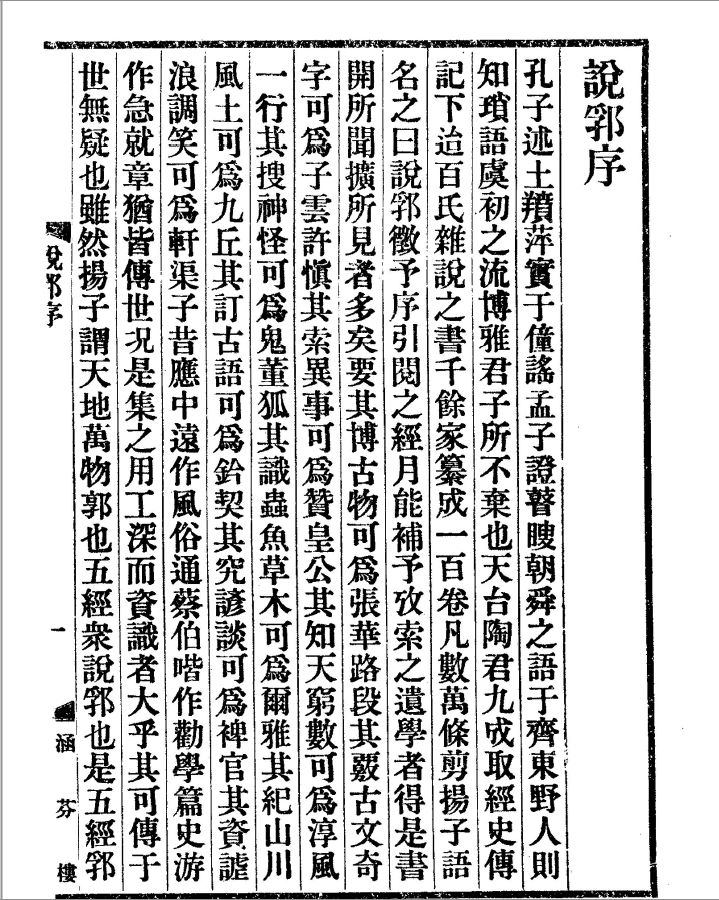 說郛序
孔子述土羵萍實于僮謠孟子證瞽瞍朝舜之語于齊東野人則
知瑣語虞初之流博雅君子所不棄也天台陶君九成取經史傳
記下迨百氏雜說之書千餘家纂成一百卷凡數萬條剪揚子語
名之曰說郛徵予序引閱之經月能補予攷索之遺學者得是書
開所聞擴所見者多矣要其博古物可爲張華路段其覈古文奇
字可爲子雲許愼其索異事可爲贊皇公其知天窮數可爲淳風
一行其搜神怪可爲鬼董狐其識蟲魚草木可爲爾雅其紀山川
風土可爲九丘其訂古語可爲鈐契其究諺談可爲稗官其資謔
浪調笑可爲軒渠子昔應中遠作風俗通蔡伯喈作勸學篇史游
作急就章猶皆傳世況是集之用工深而資識者大乎其可傳于
世無疑也雖然揚子謂天地萬物郭也五經衆說郛也是五經郛
說郛序
一
涵芬樓